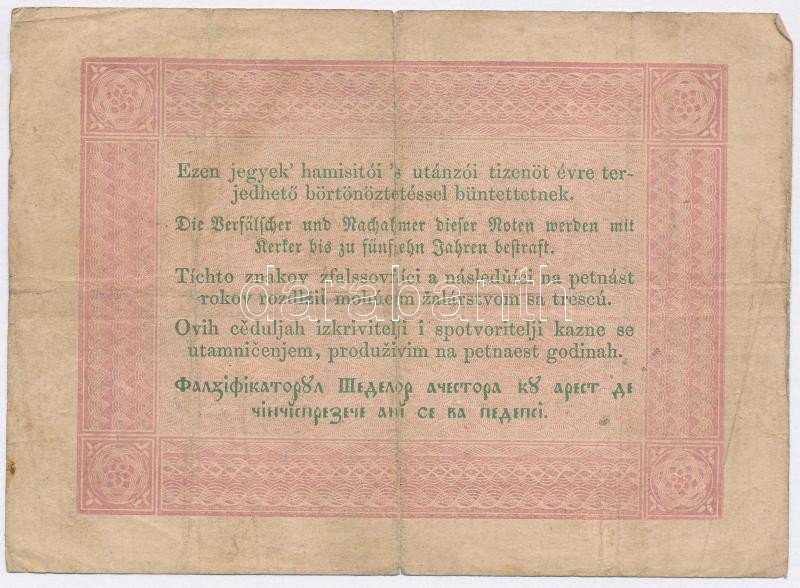 Ezen jegyek' hamisitói 's utánzói tizenöt évre ter-
jedhető börtönöztetéssel büntettetnek.
Die Verfälscher und Nachahmer dieser Noten werden mit
Kerker bis zu fünfzehn Jahren bestraft.
Tíchto znakov zfalssovňíci a následuíci na petnást
rokov rozdlžiť mohúcim žalárstvom sa trescú.
Ovih cěduljah izkrivitelji i spotvoritelji kazne se
utamničenjem, produživim na petnaest godinah.
Фалзіфікаторꙋл Шеделор ачестора кꙋ арест де
чінчіспрезече ані се ва педепсі.
darabanth